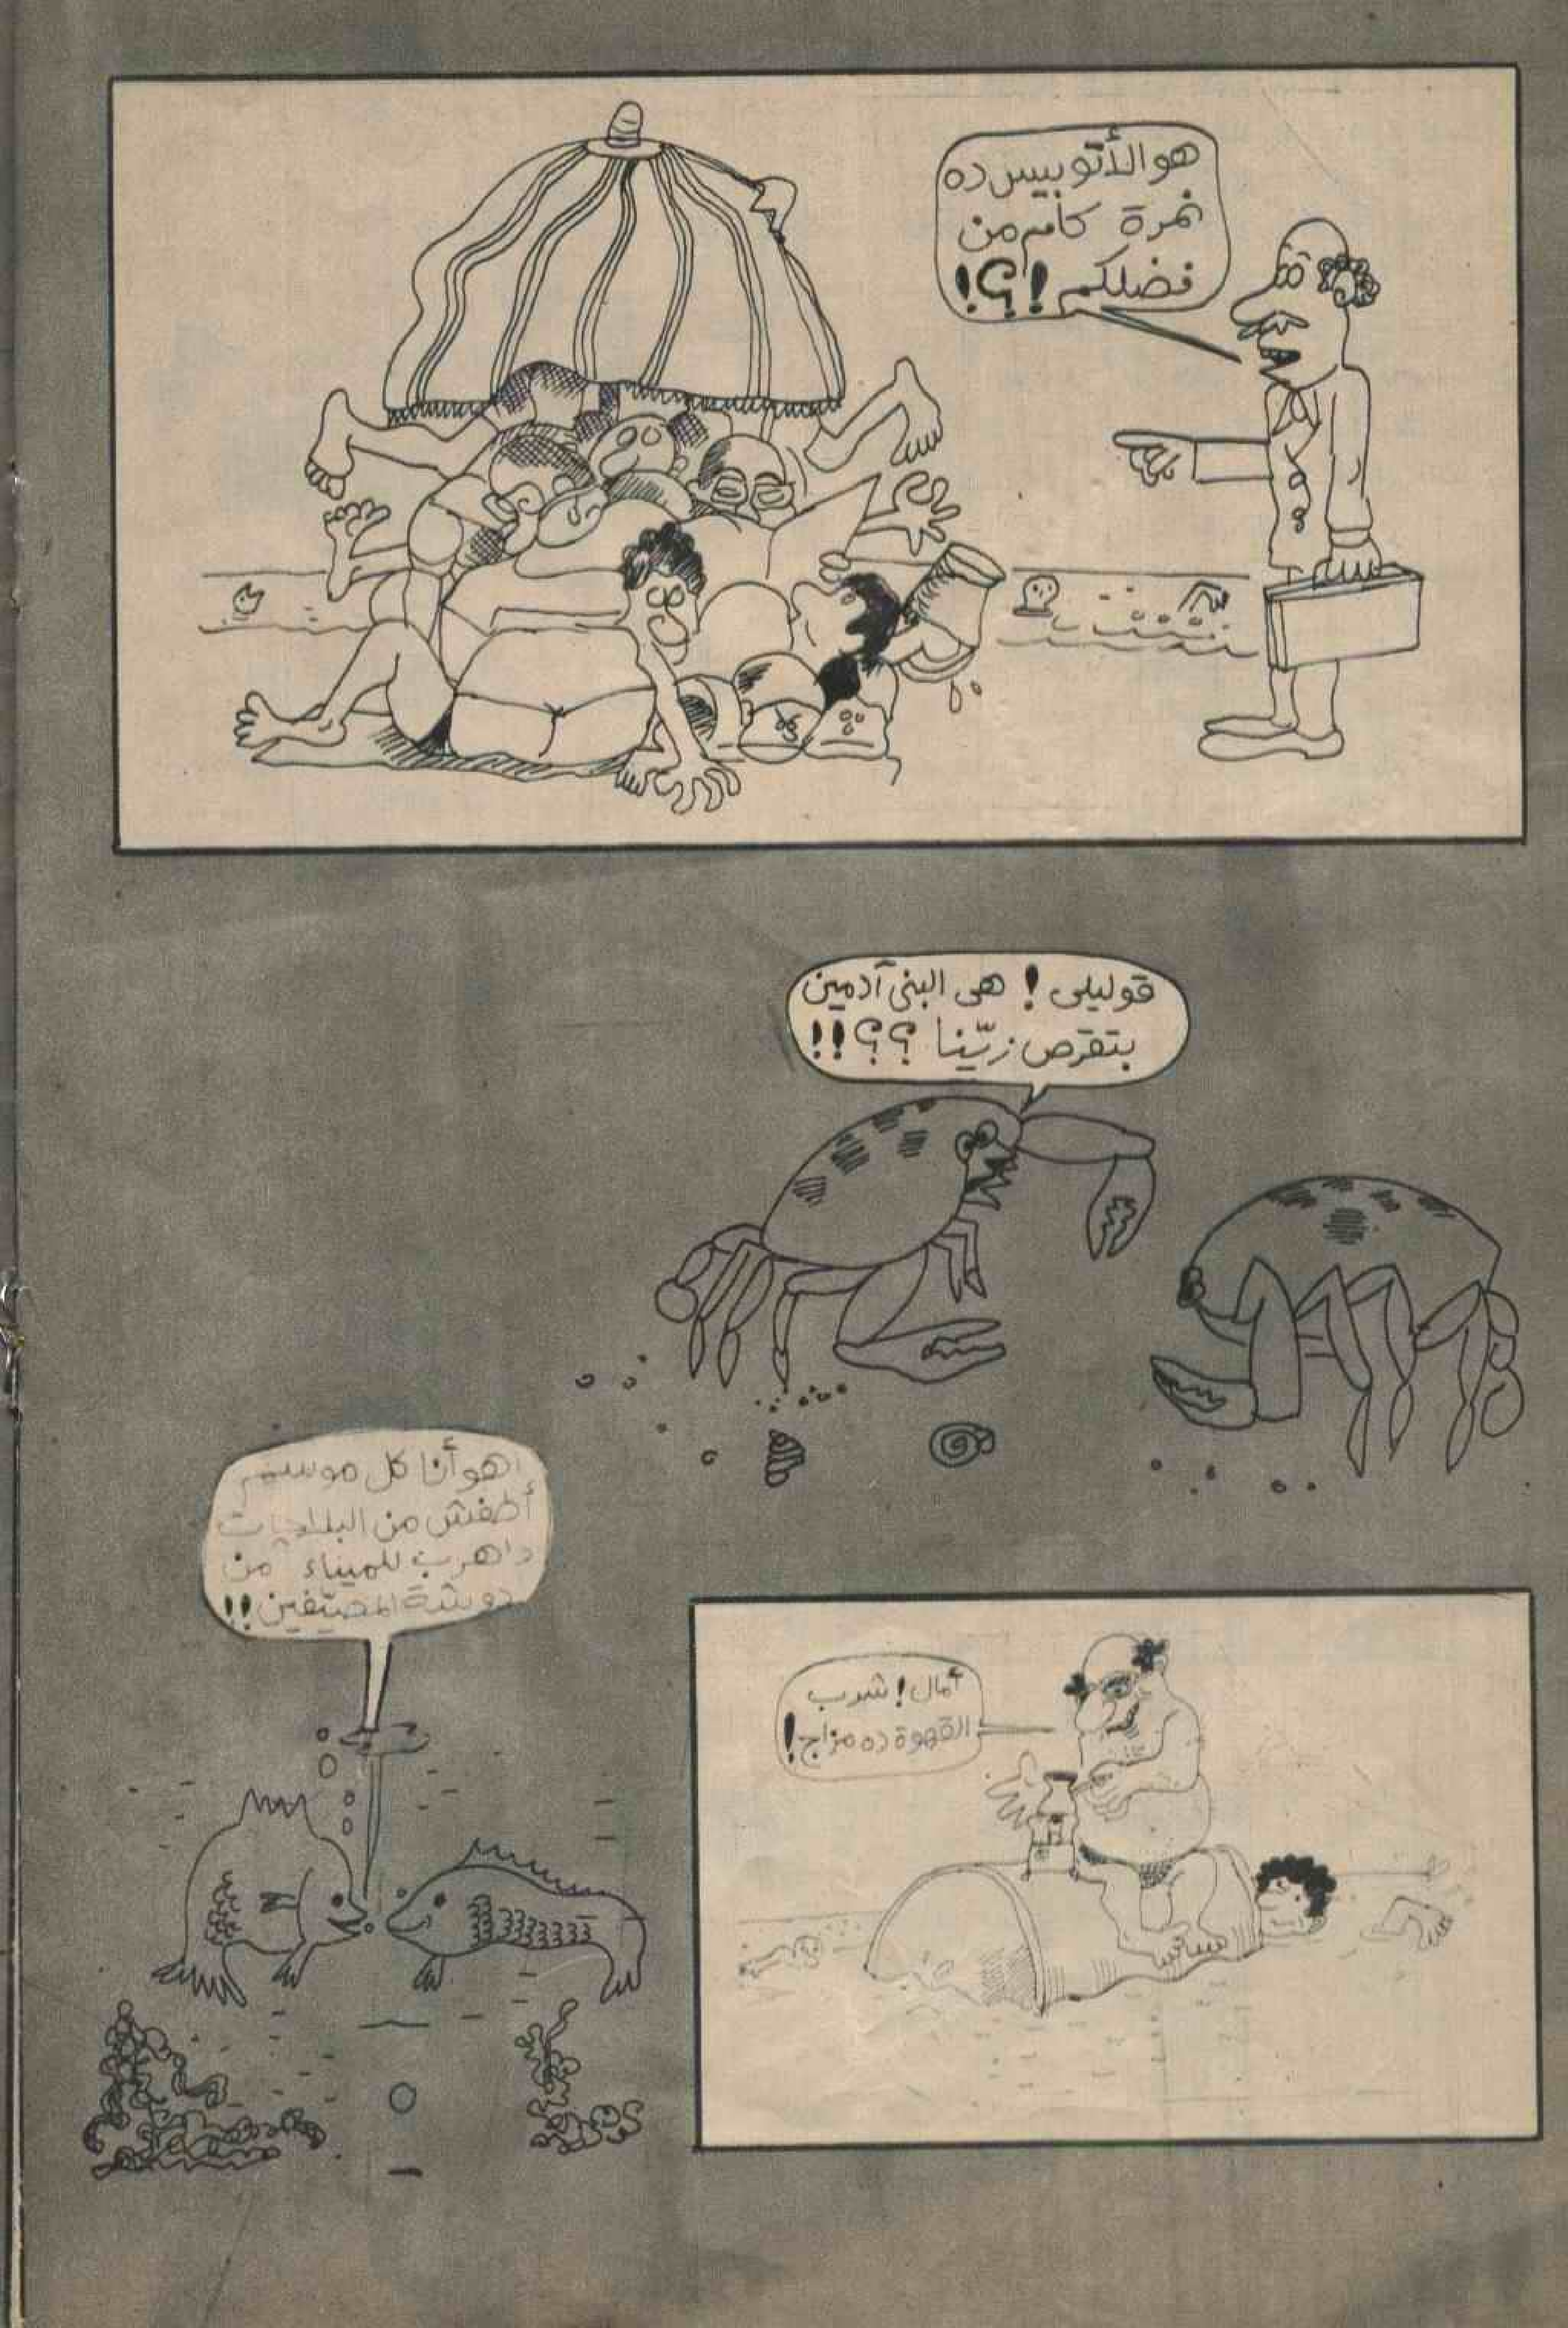 هو الأتوبيس ده
نمرة كام من
فضلكم !؟!
قوليلى ! هى البنى آدمين
بتقرص زيّنا ؟؟!!
اهو أنا كل موسم
أطفش من البلاجات
واهرب للميناء من
دوشة المصيّفين !!
أمال ! شرب
القهوة ده مزاج !